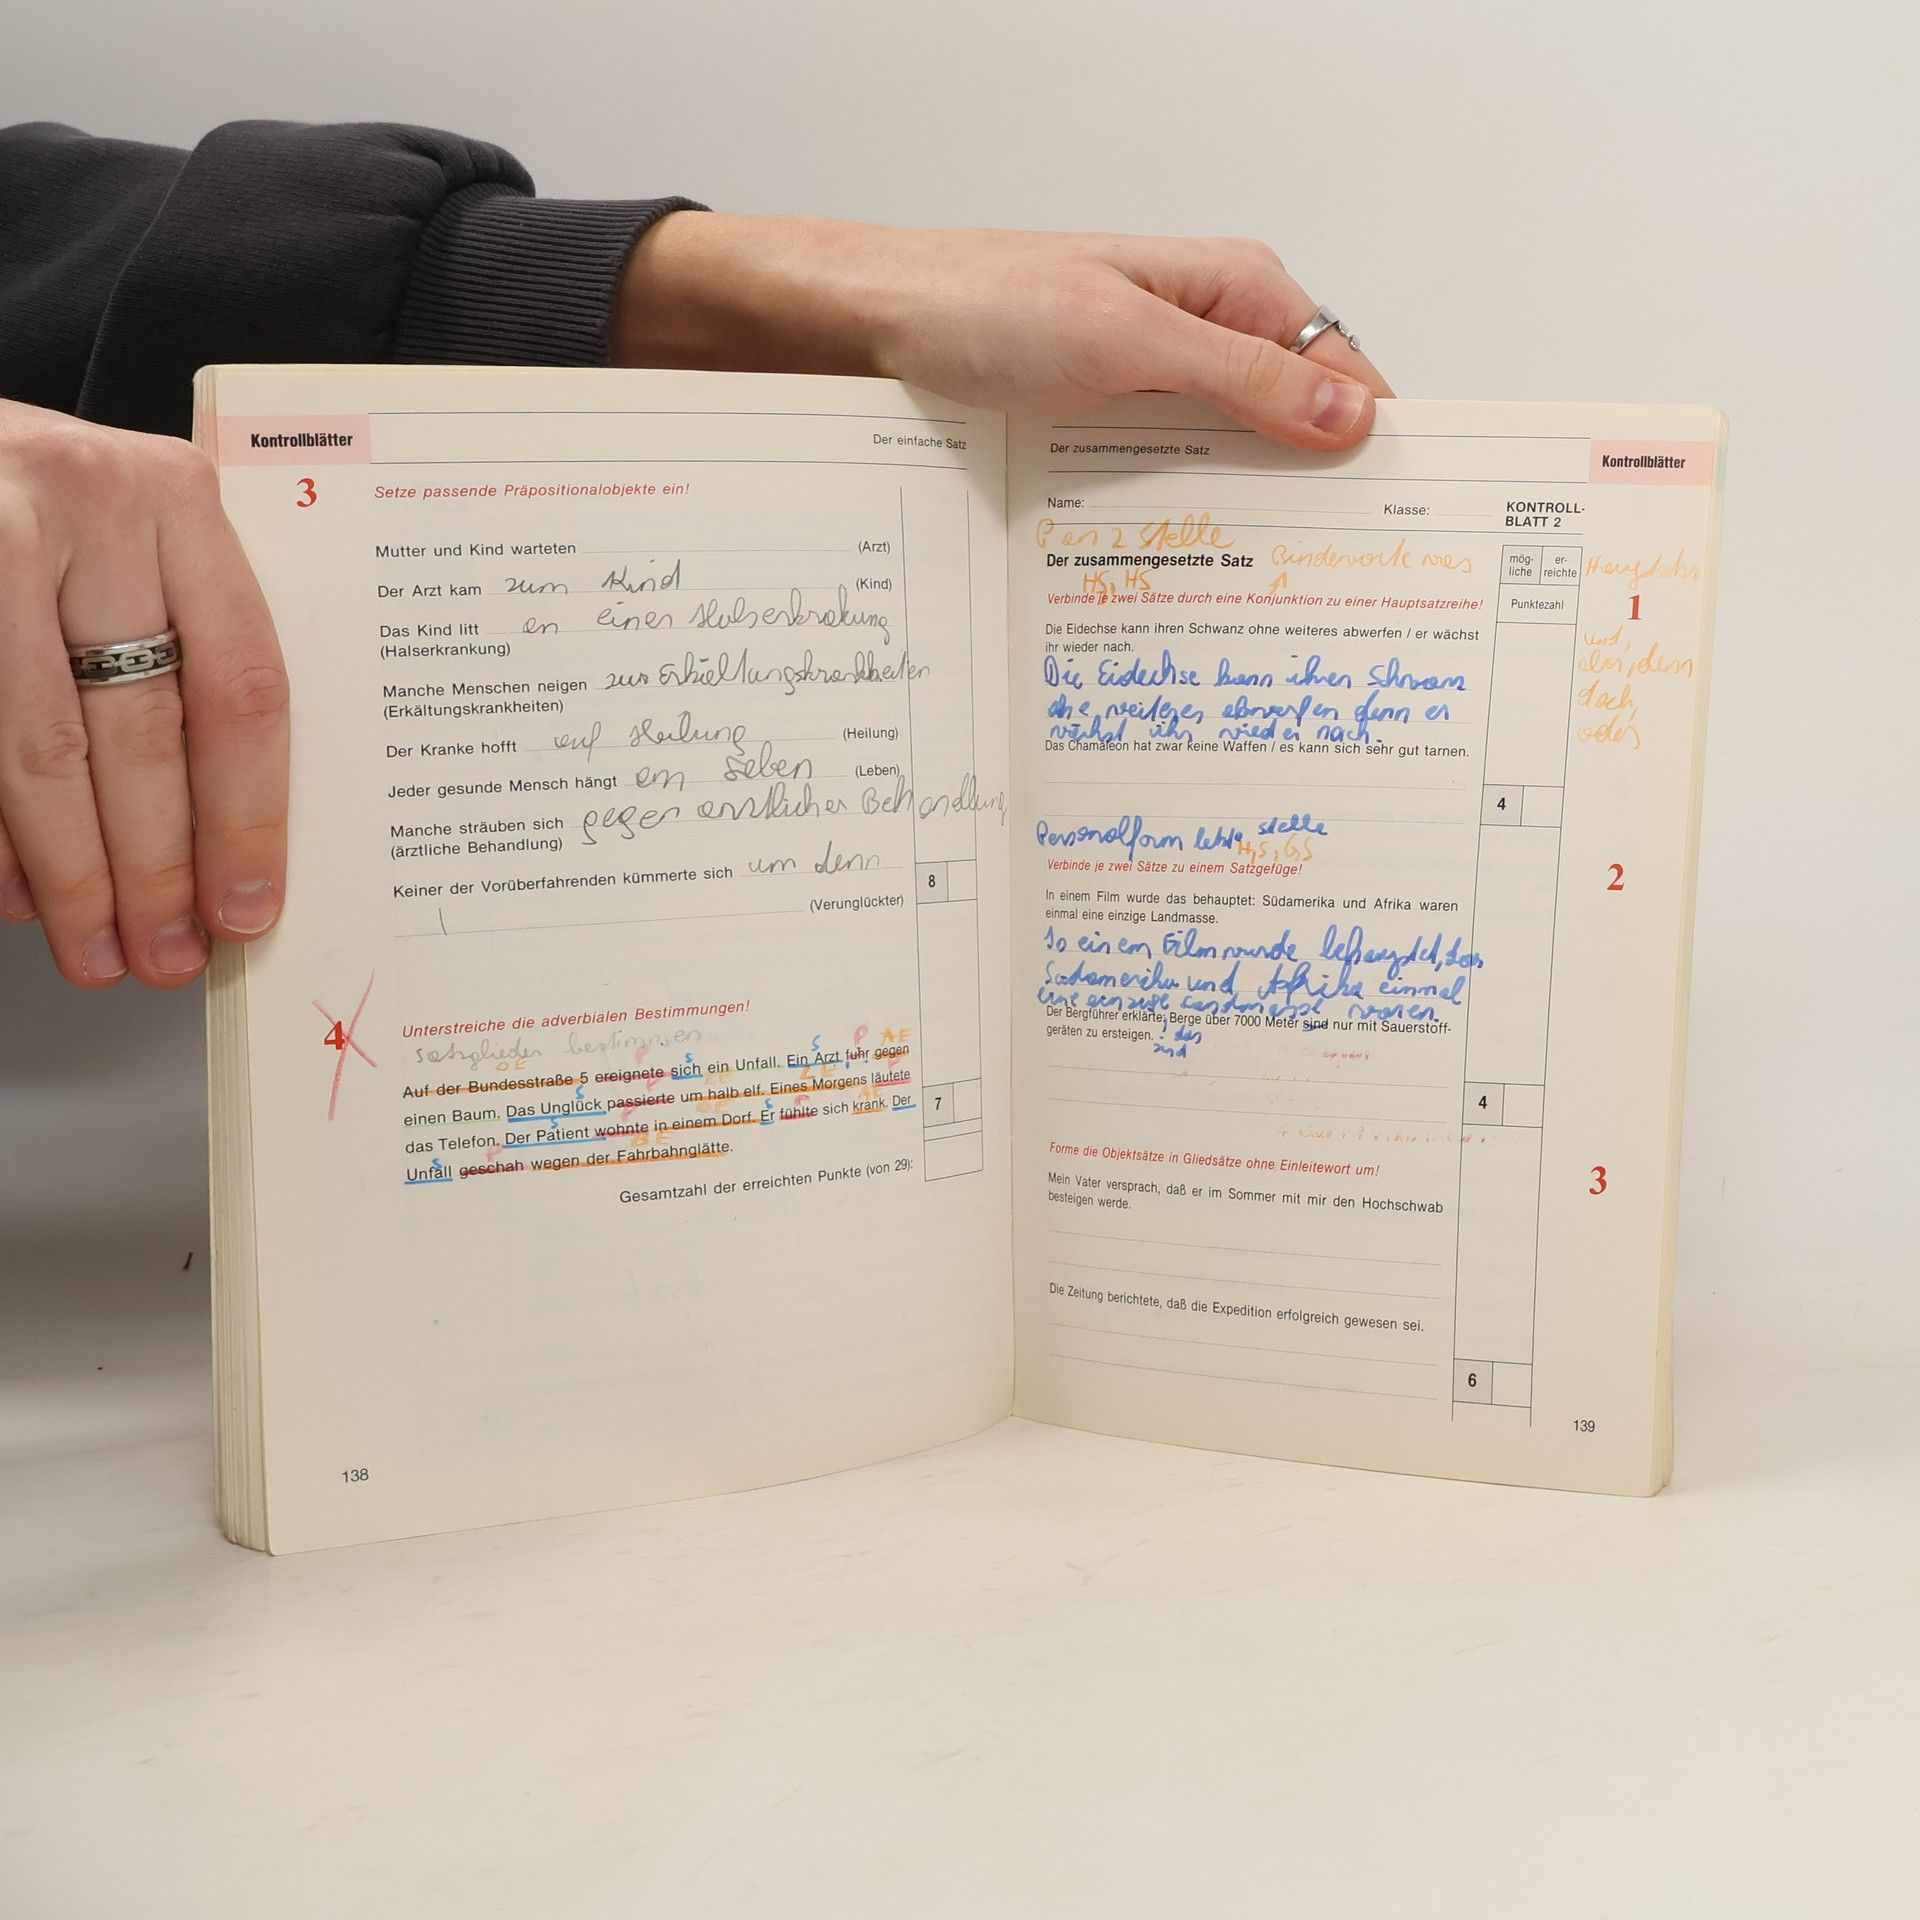 Kontrollblätter
Der einfache Satz
3
Setze passende Präpositionalobjekte ein!
Mutter und Kind warteten (Arzt)
Der Arzt kam zum Kind (Kind)
Das Kind litt an einer Halserkrakung
(Halserkrankung)
Manche Menschen neigen zur Erkältungskrankheiten
(Erkältungskrankheiten)
Der Kranke hofft auf Heilung (Heilung)
Jeder gesunde Mensch hängt am Leben (Leben)
Manche sträuben sich gegen ärztlicher Behandlung
(ärztliche Behandlung)
Keiner der Vorüberfahrenden kümmerte sich um denn
(Verunglückter)
8
4
Unterstreiche die adverbialen Bestimmungen!
Satzglieder bestimmen
Auf der Bundesstraße 5 ereignete sich ein Unfall. Ein Arzt fuhr gegen
einen Baum. Das Unglück passierte um halb elf. Eines Morgens läutete
das Telefon. Der Patient wohnte in einem Dorf. Er fühlte sich krank. Der
Unfall geschah wegen der Fahrbahnglätte.
7
Gesamtzahl der erreichten Punkte (von 29):
138
Der zusammengesetzte Satz
Kontrollblätter
Name: Klasse:
KONTROLL-
BLATT 2
2 Stelle
Der zusammengesetzte Satz
HS, HS
mög-
liche
er-
reichte
Punktezahl
Verbinde je zwei Sätze durch eine Konjunktion zu einer Hauptsatzreihe!
1
und,
aber, denn
doch,
oder
Die Eidechse kann ihren Schwanz ohne weiteres abwerfen / er wächst
ihr wieder nach.
Die Eidechse kann ihren Schwanz
ohne weiteres abwerfen denn er
wächst ihr wieder nach.
Das Chamäleon hat zwar keine Waffen / es kann sich sehr gut tarnen.
4
Personalform letzte Stelle
HS, GS
Verbinde je zwei Sätze zu einem Satzgefüge!
2
In einem Film wurde das behauptet: Südamerika und Afrika waren
einmal eine einzige Landmasse.
In einem Film wurde behauptet, das
Südamerika und Afrika einmal
eine einzige Landmasse waren.
Der Bergführer erklärte: Berge über 7000 Meter sind nur mit Sauerstoff-
geräten zu ersteigen. das
sind
4
Forme die Objektsätze in Gliedsätze ohne Einleitewort um!
3
Mein Vater versprach, daß er im Sommer mit mir den Hochschwab
besteigen werde.
Die Zeitung berichtete, daß die Expedition erfolgreich gewesen sei.
6
139